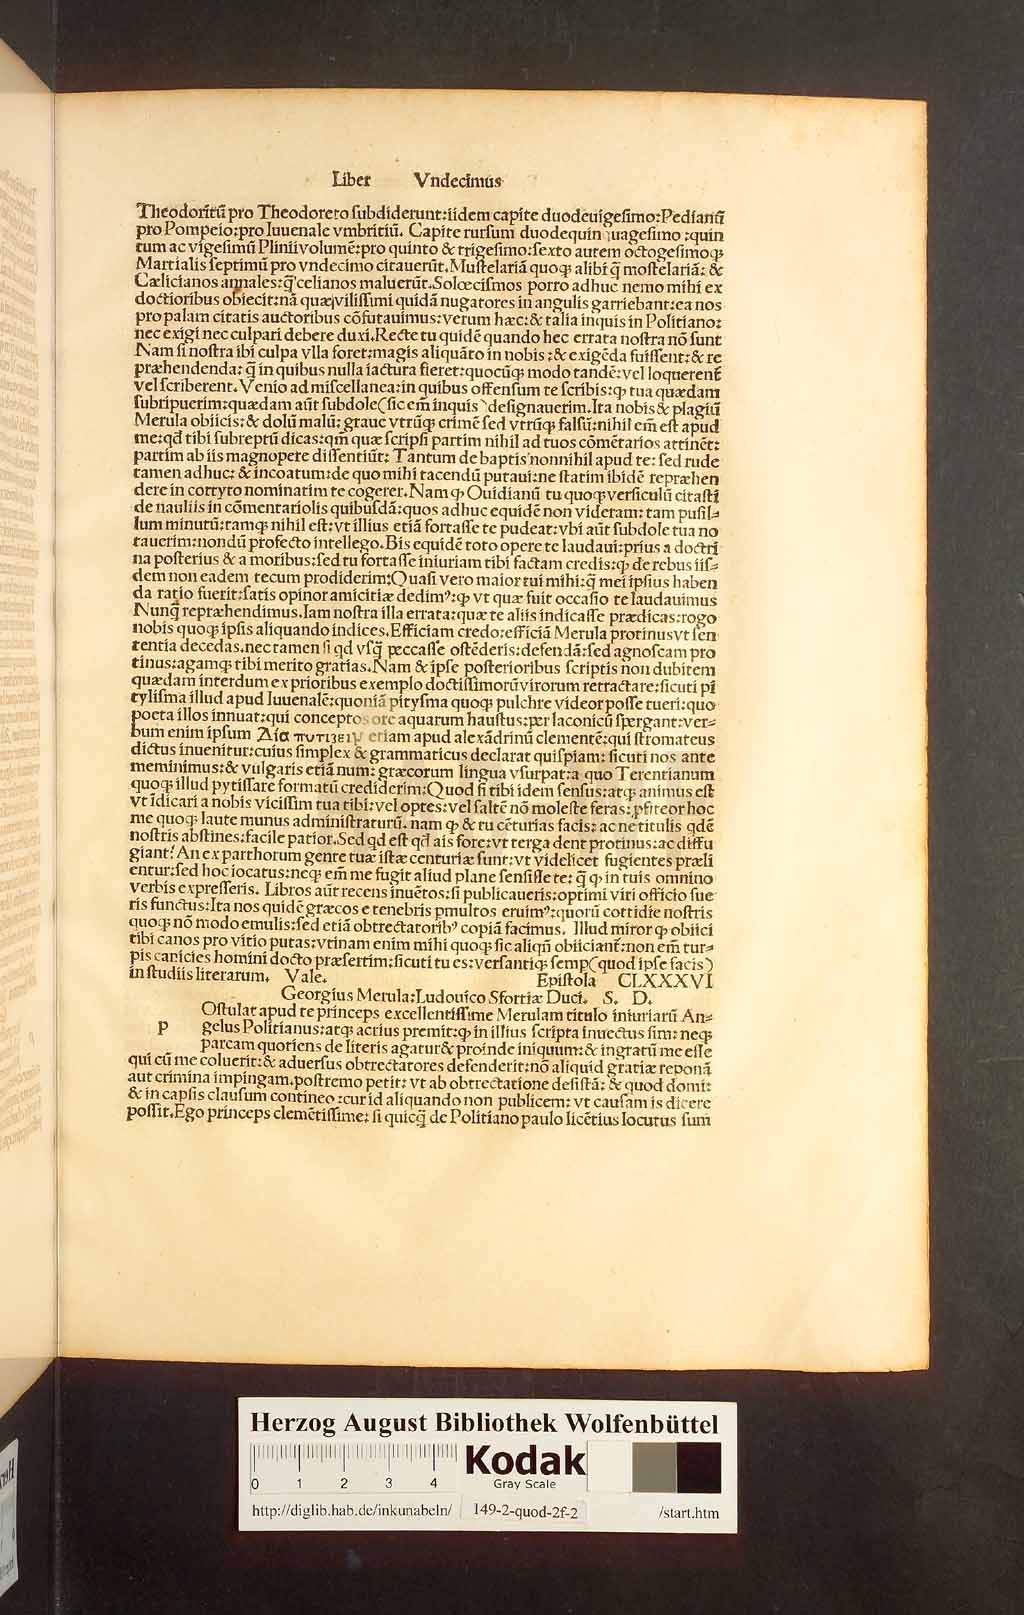 Liber Vndecimus
Theodoritū pro Theodoreto subdiderunt:iidem capite duodeuigesimo:Pedianū
pro Pompeio:pro Iuuenale vmbritiū. Capite rursum duodequinquagesimo:quin
tum ac vigesimū Plinii volumē:pro quinto & trigesimo:sexto autem octogesimoqꝫ
Martialis septimū pro vndecimo citauerūt. Mustelariā quoqꝫ alibi q̄ mostelariā: &
Cælicianos annales:q̄ celianos maluerūt. Solœcismos porro adhuc nemo mihi ex
doctioribus obiecit:nā quæ vilissimi quidā nugatores in angulis garriebant:ea nos
propalam citatis auctoribus cōfutauimus:verum hæc:& talia inquis in Politiano:
nec exigi nec culpari debere duxi. Recte tu quidē quando hec errata nostra nō sunt
Nam si nostra ibi culpa vlla foret:magis aliquāto in nobis:& exigēda fuissent:& re
præhendenda:q̄ in quibus nulla iactura fieret:quocūqꝫ modo tandē:vel loquerenť
vel scriberent. Venio ad miscellanea:in quibus offensum te scribis:qꝫ tua quædam
subripuerim:quædam aūt subdole(sic em̄ inquis)designauerim. Ita nobis & plagiū
Merula obiicis:& dolū malū: graue vtrūqꝫ crimē sed vtrūqꝫ falsū:nihil em̄ est apud
me:qd̄ tibi subreptū dicas:qm̄ quæ scripsi partim nihil ad tuos cōmētarios attinēt:
partim ab iis magnopere dissentiūt: Tantum de baptis nonnihil apud te: sed rude
tamen adhuc: & incoatum:de quo mihi tacendū putaui:ne statim ibidē repræhen
dere in cortyto nominatim te cogerer. Nam qꝫ Ouidianū tu quoqꝫ versiculū citasti
de nauliis in cōmentariolis quibusdā:quos adhuc equidē non videram: tam pusil⸗
lum minutū:tamqꝫ nihil est:vt illius etiā fortasse te pudeat:vbi aūt subdole tua no
tauerim:nondū profecto intellego. Bis equidē toto opere te laudaui:prius a doctri
na posterius & a moribus:sed tu fortasse iniuriam tibi factam credis:qꝫ de rebus iis⸗
dem non eadem tecum prodiderim:Quasi vero maior tui mihi:q̄ mei ipsius haben
da ratio fuerit:satis opinor amicitiæ dedimꝰ:qꝫ vt quæ fuit occasio te laudauimus
Nunq̄ repræhendimus. Iam nostra illa errata:quæ te aliis indicasse prædicas:rogo
nobis quoqꝫ ipsis aliquando indices. Efficiam credo:efficiā Merula protinus vt sen
tentia decedas. nec tamen si qd vsq̄ peccasse ostēderis:defendā:sed agnoscam pro
tinus:agamqꝫ tibi merito gratias. Nam & ipse posterioribus scriptis non dubitem
quædam interdum ex prioribus exemplo doctissimorū virorum retractare:sicuti pi
tylisma illud apud Iuuenalē:quoniā pitysma quoqꝫ pulchre videor posse tueri:quo
poeta illos innuat:qui conceptos ore aquarum haustus:per laconicū spergant:ver⸗
bum enim ipsum Δία πυτιζειν etiam apud alexādrinū clementē:qui stromateus
dictus inuenitur:cuius simplex & grammaticus declarat quispiam: sicuti nos ante
meminimus:& vulgaris etiā num: græcorum lingua vsurpat:a quo Terentianum
quoqꝫ illud pytissare formatū crediderim:Quod si tibi idem sensus:atqꝫ animus est
vt īdicari a nobis vicissim tua tibi:vel optes:vel saltē nō moleste feras:ꝓfiteor hoc
me quoqꝫ laute munus administraturū. nam qꝫ & tu cēturias facis: ac ne titulis qdē
nostris abstines:facile patior. Sed qd est qd̄ ais fore:vt terga dent protinus:ac diffu
giant? An ex parthorum gente tuæ istæ centuriæ sunt:vt videlicet fugientes præli
entur:sed hoc iocatus:neqꝫ em̄ me fugit aliud plane sensisse te: q̄ qꝫ in tuis omnino
verbis expresseris. Libros aūt recens inuētos:si publicaueris:optimi viri officio fue
ris functus:Ita nos quidē græcos e tenebris ꝑmultos eruimꝰ:quorū cottidie nostris
quoqꝫ nō modo emulis:sed etiā obtrectatoribꝰ copiā facimus. Illud miror qꝫ obiici
tibi canos pro vitio putas:vtinam enim mihi quoqꝫ sic aliqñ obiicianť:non em̄ tur⸗
pis canicies homini docto præsertim:sicuti tu es:versantiqꝫ semp(quod ipse facis)
in studiis literarum. Vale. Epistola CLXXXVI
Georgius Merula:Ludouico Sfortiæ Duci. S. D.
p Ostulat apud te princeps excellentissime Merulam titulo iniuriarū An⸗
gelus Politianus:atqꝫ acrius premit:qꝫ in illius scripta inuectus sim: neqꝫ
parcam quotiens de literis agatur& proinde iniquum:& ingratū me esse
qui cū me coluerit:& aduersus obtrectatores defenderit:nō aliquid gratiæ reponā
aut crimina impingam. postremo petit: vt ab obtrectatione desistā: & quod domi:
& in capsis clausum contineo:cur id aliquando non publicem: vt causam is dicere
possit. Ego princeps clemētissime: si quicq̄ de Politiano paulo licētius locutus sum
Herzog August Bibliothek Wolfenbüttel
0 1 2 3 4
Kodak
Gray Scale
http://diglib.hab.de/inkunabeln/ 149-2-quod-2f-2 /start.htm